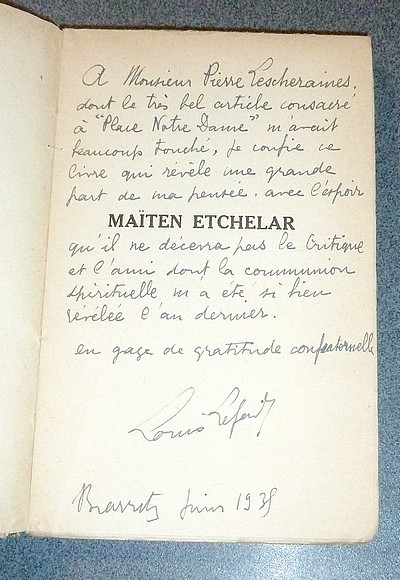 A Monsieur Pierre Lescheraines,
dont le très bel article consacré
à "Place Notre Dame" m'avait
beaucoup touché, je confie ce
livre qui révèle une grande
part de ma pensée. avec l'espoir
MAÏTEN ETCHELAR
qu'il ne décevra pas le Critique
et l'ami dont la communion
spirituelle m'a été si bien
révélée l'an dernier.
en gage de gratitude confraternelle
Louis
Biarritz Juin 1935